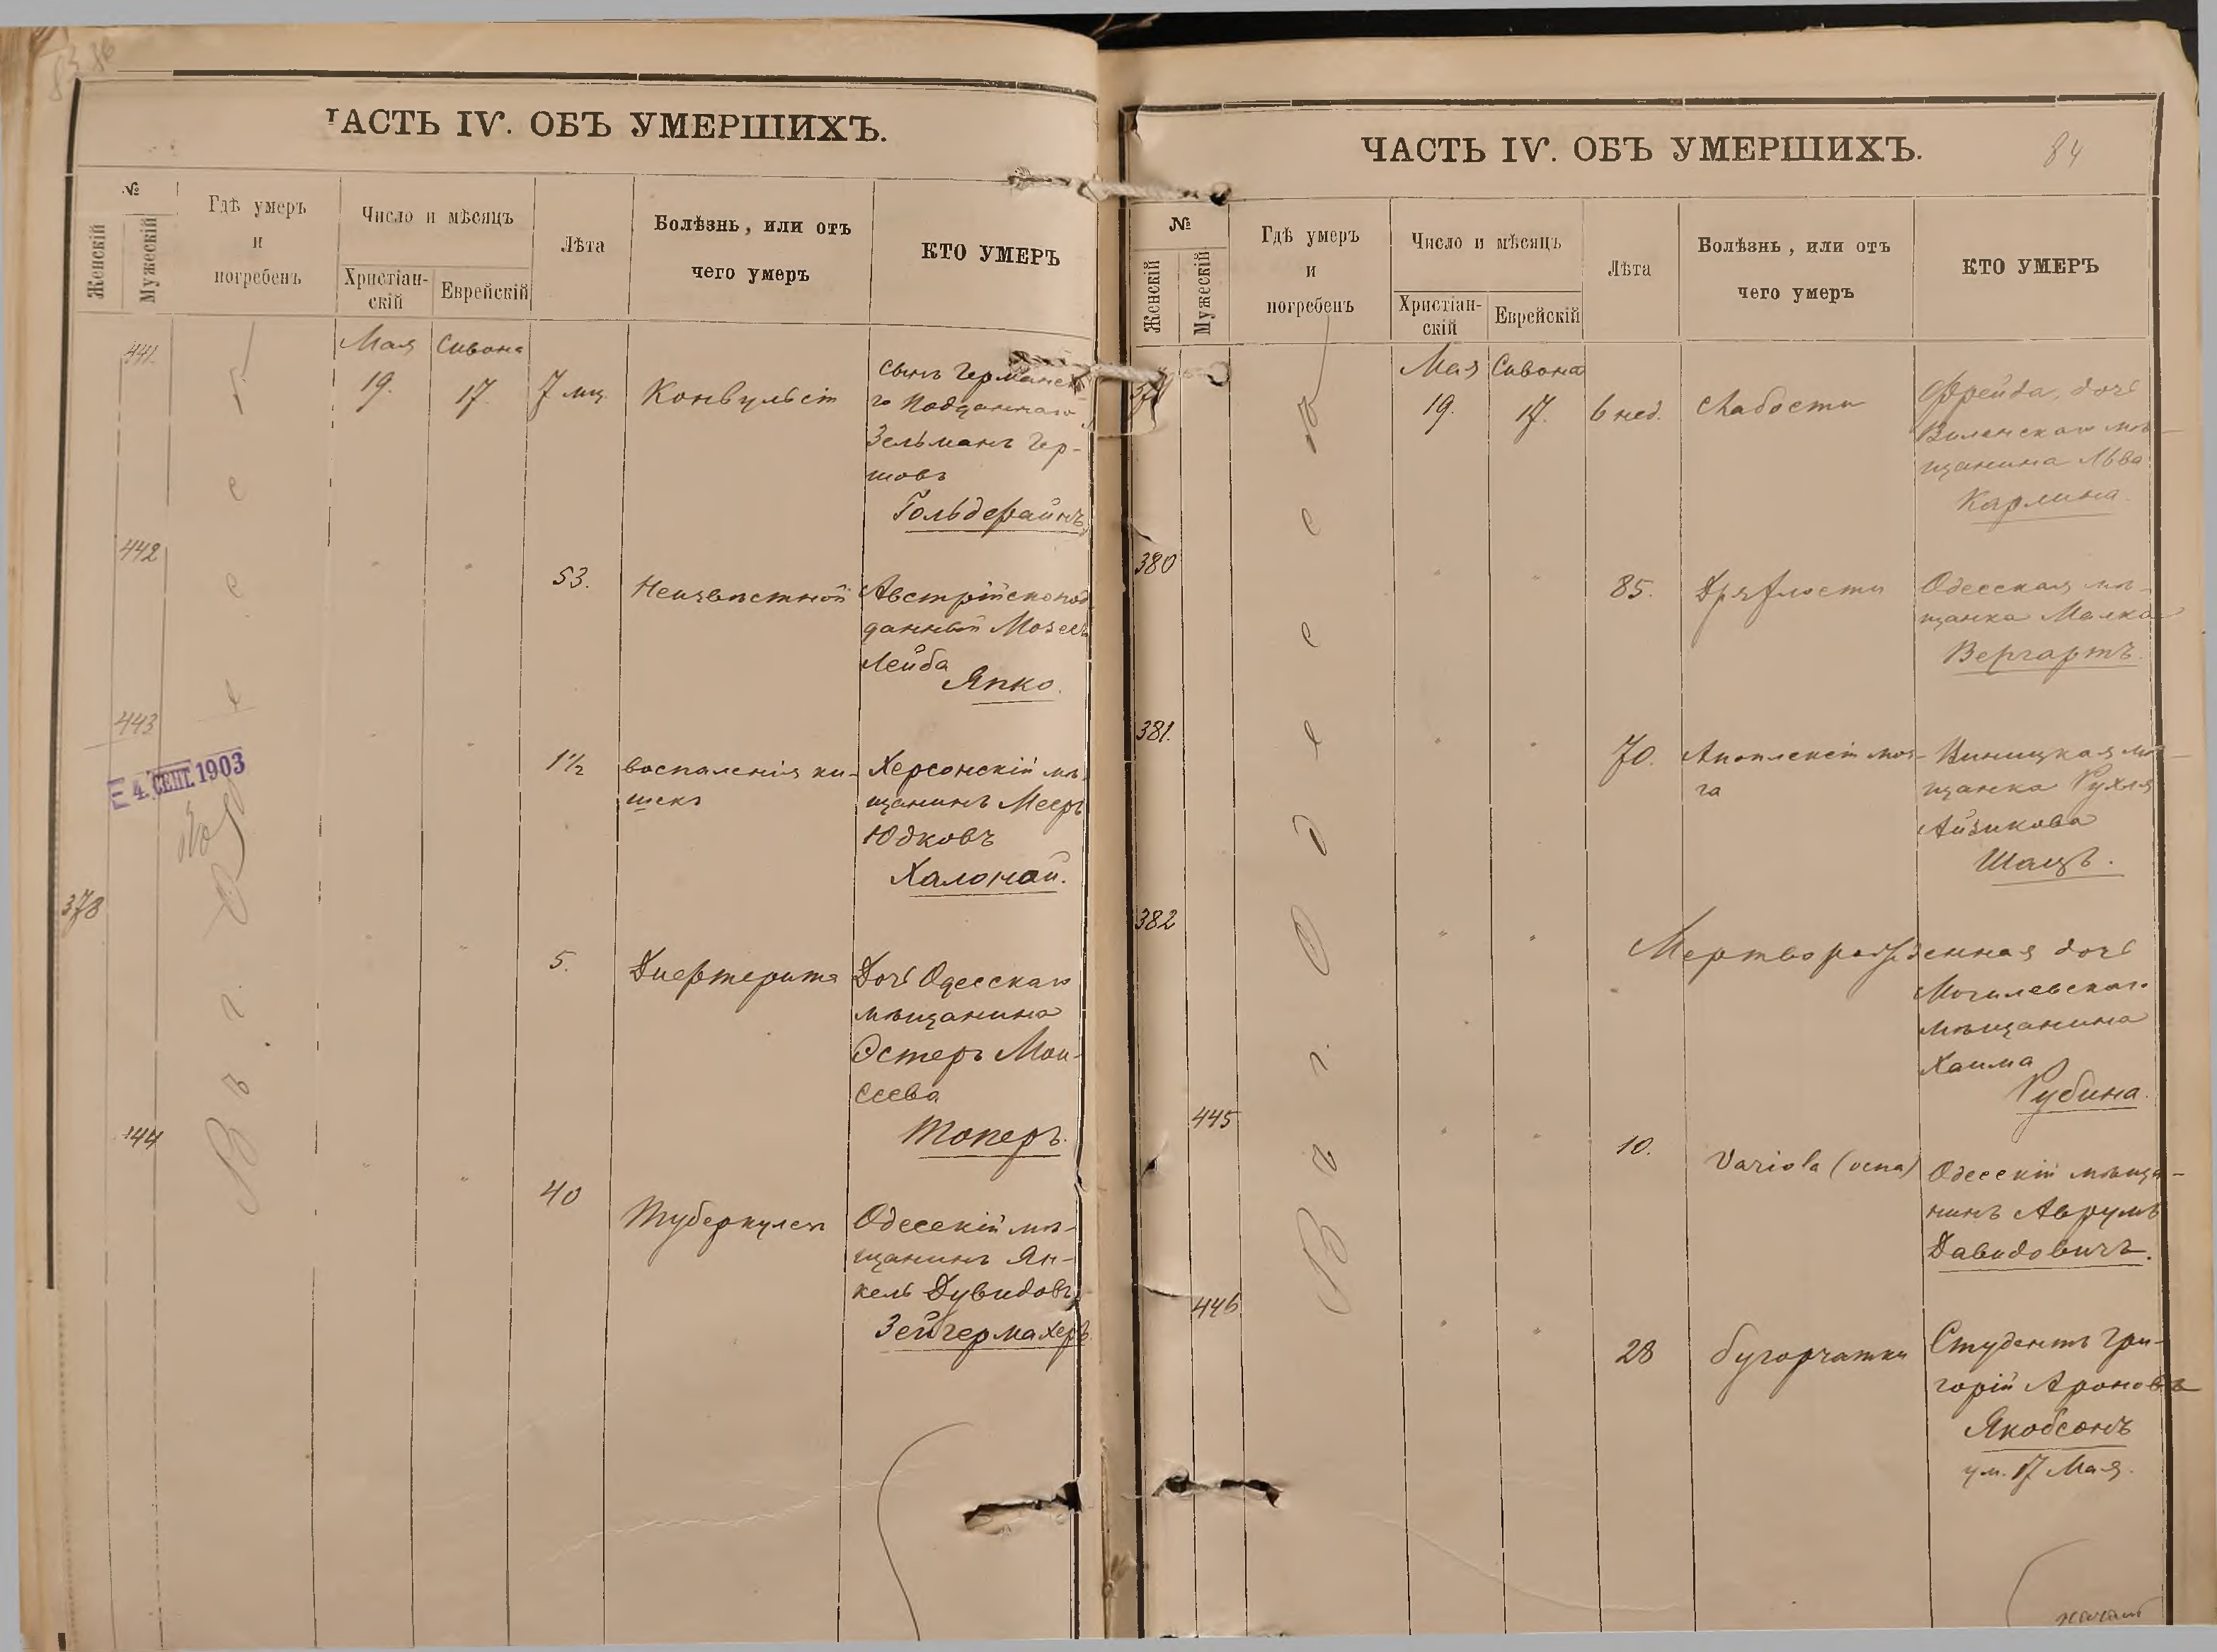 ЧАСТЬ IV. ОБЪ УМЕРШИХЪ.
№
Женскій
Мужескій
Гдѣ умеръ
и
погребенъ
Число и мѣсяцъ
Христіан-
скій
Еврейскій
Лѣта
Болѣзнь, или отъ
чего умеръ
КТО УМЕРЪ
Въ г. Одессе
441.
Мая
Сивона
19.
17.
7 мц.
Конвульсіи
сынъ Германск
го Подданнаго
Зельманъ Гер-
шовъ
Гольдфайнъ
442
53.
Неизвѣстной
Австрійскопод
данный Мозесъ
Лейба
Япко.
443
1½
воспаленія ки-
шекъ
Херсонскій мѣ-
щанинъ Мееръ
Юдковъ
Халонай.
4. СЕНТ. 1903
378
5.
Дифтерита
Дочь Одесскаго
мѣщанина
Эстеръ Мои-
сеева
Топеръ.
444
40
Туберкулез
Одесскій мѣ-
щанинъ Ян-
кель Дувидовъ
Зейгермахеръ
ЧАСТЬ IV. ОБЪ УМЕРШИХЪ.
84
№
Женскій
Мужескій
Гдѣ умеръ
и
погребенъ
Число и мѣсяцъ
Христіан-
скій
Еврейскій
Лѣта
Болѣзнь, или отъ
чего умеръ
КТО УМЕРЪ
Въ г. Одессе
379
Мая
Сивона
19.
17.
6 нед.
слабости
Фрейда, дочь
Виленскаго мѣ-
щанина Льва
Карлина.
380
85.
Дряхлости
Одесская мѣ-
щанка Малка
Вергартъ.
381.
70.
Апоплексіи моз-
га
Виницкая мѣ-
щанка Рухля
Айзикова
Шацъ.
382
Мертворожденная дочь
Могилевскаго
мѣщанина
Хаима
Рубина.
445
10.
Variola (оспа)
Одесскій мѣща-
нинъ Аврумъ
Давидовичъ.
446
28
бугорчатки
Студентъ Гри-
горій Ароновъ
Якобсонъ
ум. 17 Мая.